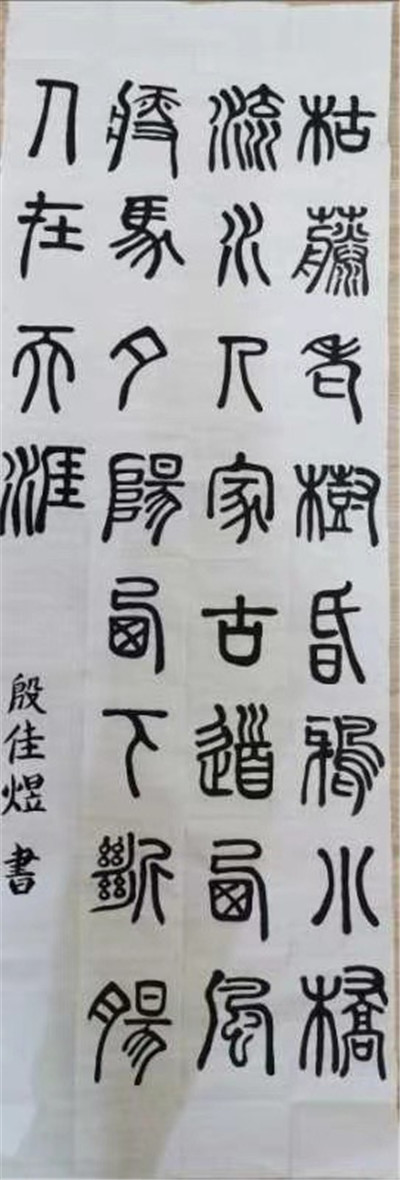 枯藤老樹昏鴉小橋
流水人家古道西風
瘦馬夕陽西下斷腸
人在天涯
殷佳煜書